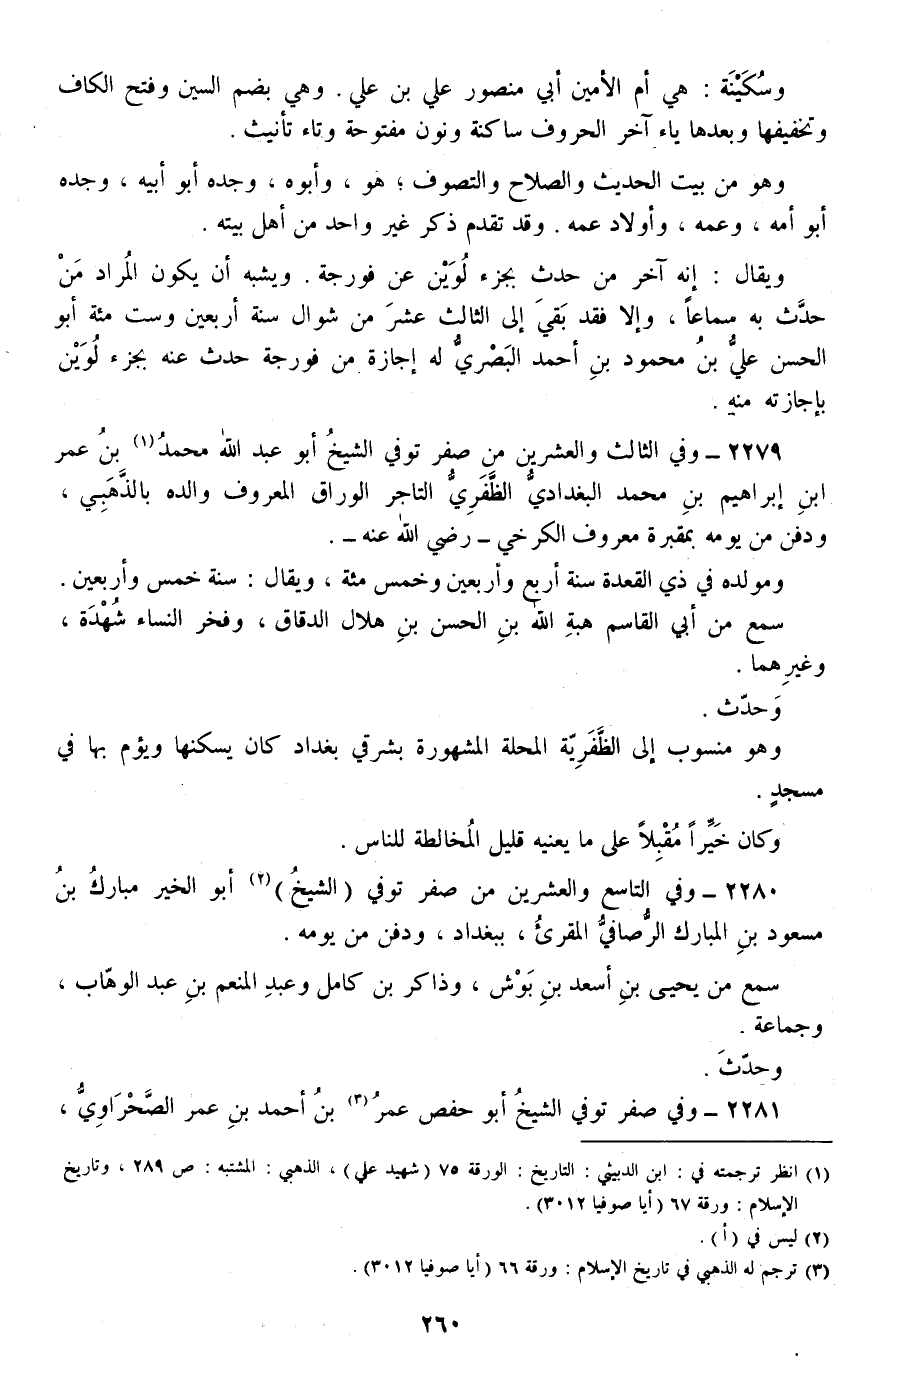 وسُكَيْنَة : هي أم الأمين أبي منصور علي بن علي . وهي بضم السين وفتح الكاف
وتخفيفها وبعدها ياء آخر الحروف ساكنة ونون مفتوحة وتاء تأنيث .
وهو من بيت الحديث والصلاح والتصوف ؛ هو ، وأبوه ، وجده أبو أبيه ، وجده
أبو أمه ، وعمه ، وأولاد عمه . وقد تقدم ذكر غير واحد من أهل بيته .
ويقال : إنه آخر من حدث بجزء لُوَيْن عن فورجة . ويشبه أن يكون المُراد مَنْ
حدَّث به سماعاً ، وإلا فقد بَقيَ إلى الثالث عشرَ من شوال سنة أربعين وست مئة أبو
الحسن عليُّ بنُ محمود بنِ أحمد البَصْريُّ له إجازة من فورجة حدث عنه بجزء لُوَيْن
بإجازته منه .
٢٢٧٩ ــ وفي الثالث والعشرين من صفر توفي الشيخُ أبو عبد الله محمدُ(١) بنُ عمر
ابنِ إبراهيم بنِ محمد البغداديُّ الظَّفَرِيُّ التاجر الوراق المعروف والده بالذَّهَبِي ،
ودفن من يومه بمقبرة معروف الكرخي ــ رضي الله عنه ــ .
ومولده في ذي القعدة سنة أربع وأربعين وخمس مئة ، ويقال : سنة خمس وأربعين .
سمع من أبي القاسم هبةِ الله بنِ الحسن بنِ هلال الدقاق ، وفخر النساء شُهْدَة ،
وغيرِهما .
وَحدّث .
وهو منسوب إلى الظَّفَرِيّة المحلة المشهورة بشرقي بغداد كان يسكنها ويؤم بها في
مسجدٍ .
وكان خَيِّراً مُقْبِلاً على ما يعنيه قليل المُخالطة للناس .
٢٢٨٠ ــ وفي التاسع والعشرين من صفر توفي (الشيخُ)(٢) أبو الخير مباركُ بنُ
مسعود بنِ المبارك الرُّصافيُّ المقرئُ ، ببغداد ، ودفن من يومه .
سمع من يحيى بنِ أسعد بنِ بَوْش ، وذاكر بن كامل وعبدِ المنعم بنِ عبد الوهّاب ،
وجماعة .
وحدّثَ .
٢٢٨١ ــ وفي صفر توفي الشيخُ أبو حفص عمرُ(٣) بنُ أحمد بنِ عمر الصَّحْرَاويُّ ،
(١) انظر ترجمته في : ابن الدبيثي : التاريخ : الورقة ٧٥ (شهيد علي) ، الذهبي : المشتبه : ص ٢٨٩ ، وتاريخ
الإسلام : ورقة ٦٧ (أيا صوفيا ٣٠١٢) .
(٢) ليس في (أ) .
(٣) ترجم له الذهبي في تاريخ الإسلام : ورقة ٦٦ (أيا صوفيا ٣٠١٢) .
٢٦٠